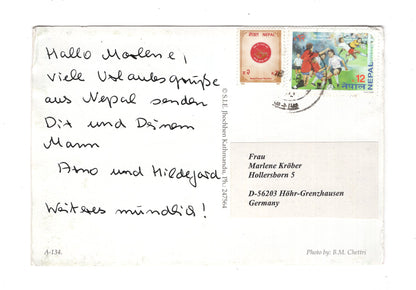 Hallo Marlene,
viele Urlaubsgrüße
aus Nepal senden
Dir und Deinem
Mann
Arno und Hildegard
Weiteres mündlich!
POST NEPAL
12
नेपाल
NEPAL
Frau
Marlene Kröber
Hollersborn 5
D-56203 Höhr-Grenzhausen
Germany
A-134.
Photo by: B.M. Chettri